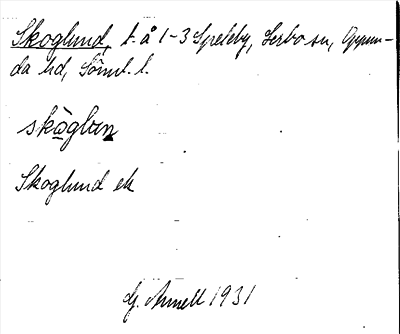 Skoglund, t. å 1-3 Spreteby, Lerbo sn, Oppun-
da hd, Söml. l.
skòglun
Skoglund ek
G. Annell 1931